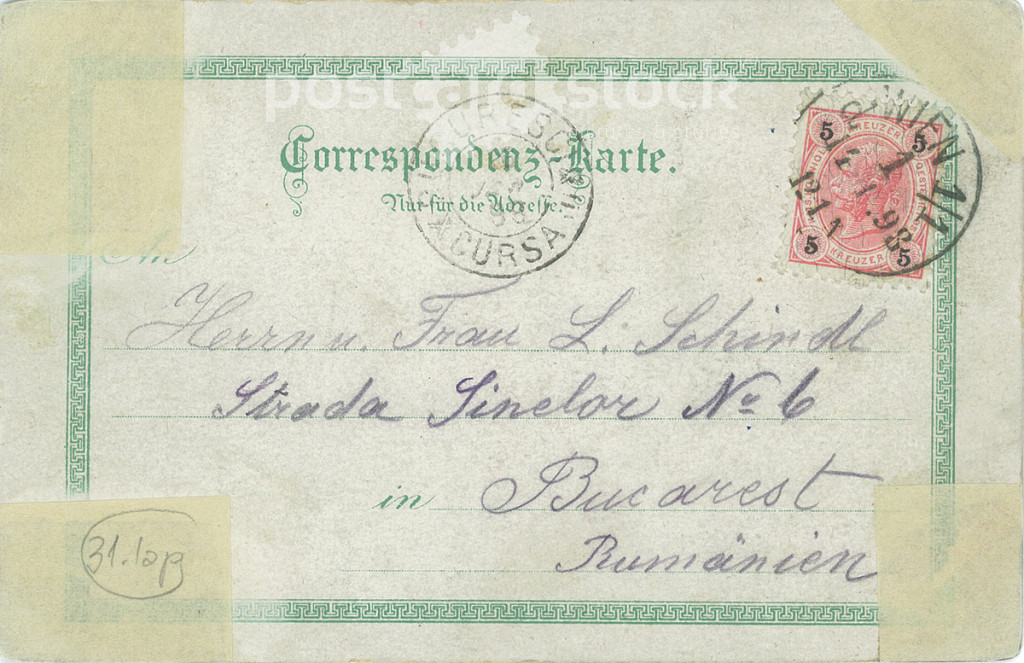 postcard stock
Correspondenz-Karte.
Nur für die Adresse.
CURSA
WIEN 1/1
5 KREUZER 5
5 KREUZER 5
An
Herrn u. Frau L. Schindl
Strada Sinelor No 6
in Bucarest
Rumänien
31. lap